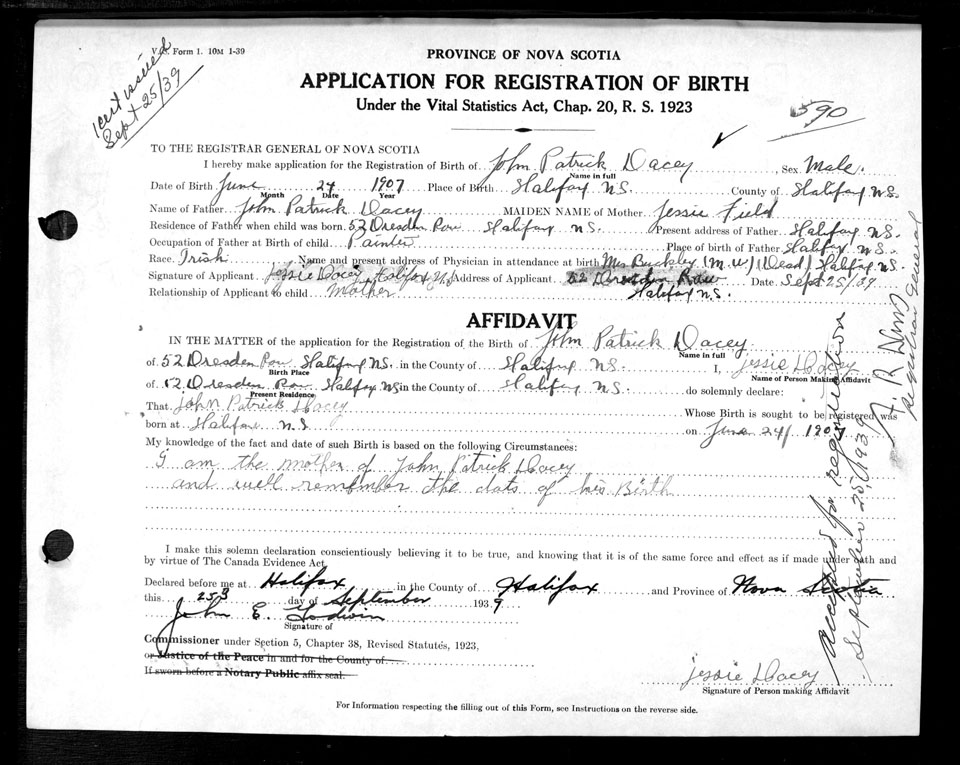 V.S. Form 1. 10M 1-39
cert issued
Sept 25/39
PROVINCE OF NOVA SCOTIA
APPLICATION FOR REGISTRATION OF BIRTH
Under the Vital Statistics Act, Chap. 20, R. S. 1923
590
TO THE REGISTRAR GENERAL OF NOVA SCOTIA
I hereby make application for the Registration of Birth of John Patrick Dacey Sex Male.
Name in full
Date of Birth June 24 1907 Place of Birth Halifax N.S. County of Halifax N.S.
Month Date Year
Name of Father John Patrick Dacey MAIDEN NAME of Mother Jessie Field
Residence of Father when child was born 52 Dresden Row Halifax N.S. Present address of Father Halifax N.S.
Occupation of Father at Birth of child Painter Place of birth of Father Halifax N.S.
Race. Irish Name and present address of Physician in attendance at birth Mrs Buckley (M.W) (Dead) Halifax N.S.
Signature of Applicant Jessie Dacey Halifax N.S. Address of Applicant 52 Dresden Row Date Sept 25/39
Relationship of Applicant to child Mother Halifax N.S.
AFFIDAVIT
IN THE MATTER of the application for the Registration of the Birth of John Patrick Dacey
Name in full
of 52 Dresden Row Halifax N.S. in the County of Halifax N.S. I, Jessie Dacey
Birth Place Name of Person Making Affidavit
of 52 Dresden Row Halifax N.S in the County of Halifax N.S. do solemnly declare:
Present Residence
That John Patrick Dacey Whose Birth is sought to be registered was
born at Halifax N.S on June 24/ 1907
My knowledge of the fact and date of such Birth is based on the following Circumstances:
I am the mother of John Patrick Dacey
and well remember the date of his Birth
I make this solemn declaration conscientiously believing it to be true, and knowing that it is of the same force and effect as if made under oath and
by virtue of The Canada Evidence Act.
Declared before me at Halifax in the County of Halifax and Province of Nova Scotia
this 25 day of September 1939
John E. Godwin
Signature of
Commissioner under Section 5, Chapter 38, Revised Statutes, 1923,
or Justice of the Peace in and for the County of
If sworn before a Notary Public affix seal.
Jessie Dacey
Signature of Person making Affidavit
For Information respecting the filling out of this Form, see Instructions on the reverse side.
Accepted for registration
September 25, 1939
Registrar General